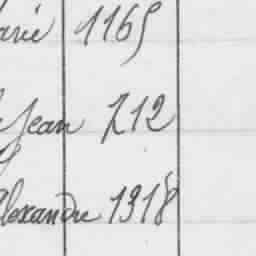 arié 1165
Jean 212
Alexandre 1318